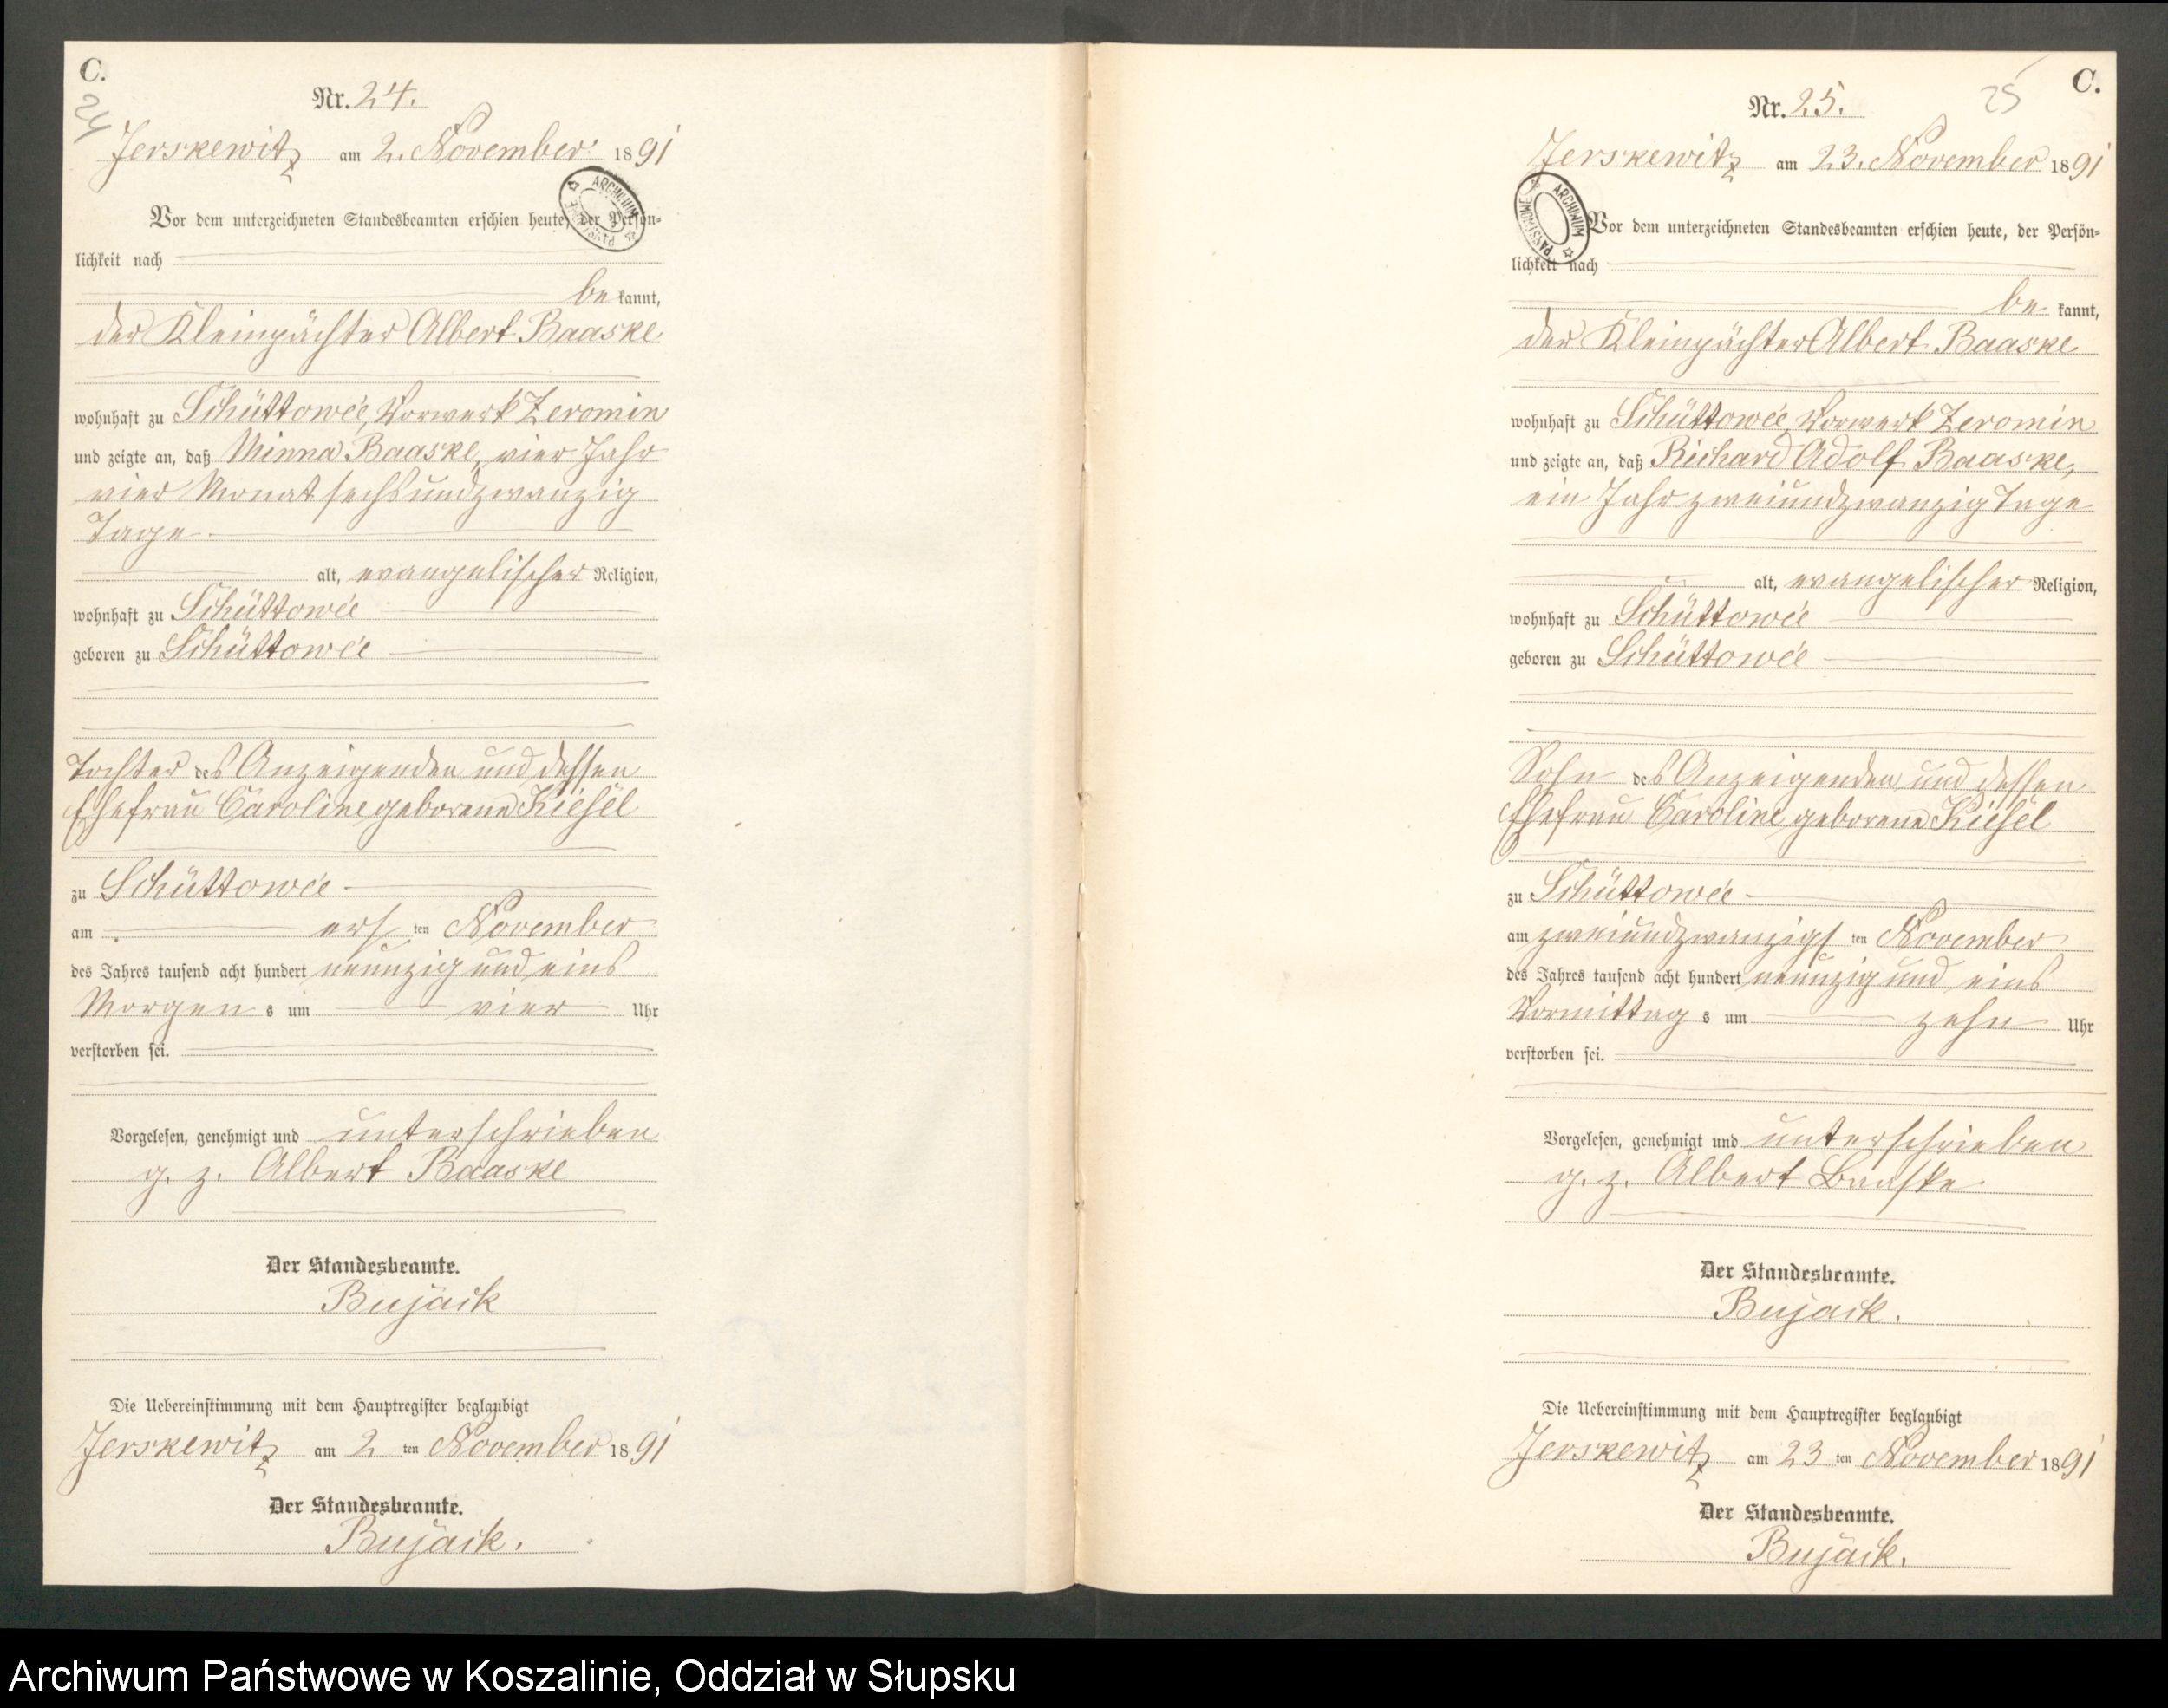 C.
24
Nr. 24.
Jerskewitz am 2. November 1891
Vor dem unterzeichneten Standesbeamten erschien heute, der Persön-
lichkeit nach
be kannt,
der Kleinpächter Albert Baaske
wohnhaft zu Schüttowée, Vorwerk Zeromin
und zeigte an, daß Minna Baaske, vier Jahr
vier Monat sechsundzwanzig
Tage
alt, evangelischer Religion,
wohnhaft zu Schüttowée
geboren zu Schüttowée
Tochter des Anzeigenden und dessen
Ehefrau Caroline geborene Kiesel
zu Schüttowée
am ers ten November
des Jahres tausend acht hundert neunzig und eins
Morgen s um vier Uhr
verstorben sei.
Vorgelesen, genehmigt und unterschrieben
g. z. Albert Baaske
Der Standesbeamte.
Bujack
Die Uebereinstimmung mit dem Hauptregister beglaubigt
Jerskewitz am 2 ten November 1891
Der Standesbeamte.
Bujack.
C.
25
Nr. 25.
Jerskewitz am 23. November 1891
ARCHIWUM PAŃSTWOWE
Vor dem unterzeichneten Standesbeamten erschien heute, der Persön-
lichkeit nach
be kannt,
der Kleinpächter Albert Baaske
wohnhaft zu Schüttowée, Vorwerk Zeromin
und zeigte an, daß Richard Adolf Baaske,
ein Jahr zweiundzwanzig Tage
alt, evangelischer Religion,
wohnhaft zu Schüttowée
geboren zu Schüttowée
Sohn des Anzeigenden und dessen
Ehefrau Caroline geborene Kiesel
zu Schüttowée
am zweiundzwanzigs ten November
des Jahres tausend acht hundert neunzig und eins
Vormittag s um zehn Uhr
verstorben sei.
Vorgelesen, genehmigt und unterschrieben
g. z. Albert Baaske
Der Standesbeamte.
Bujack.
Die Uebereinstimmung mit dem Hauptregister beglaubigt
Jerskewitz am 23 ten November 1891
Der Standesbeamte.
Bujack.
Archiwum Państwowe w Koszalinie, Oddział w Słupsku